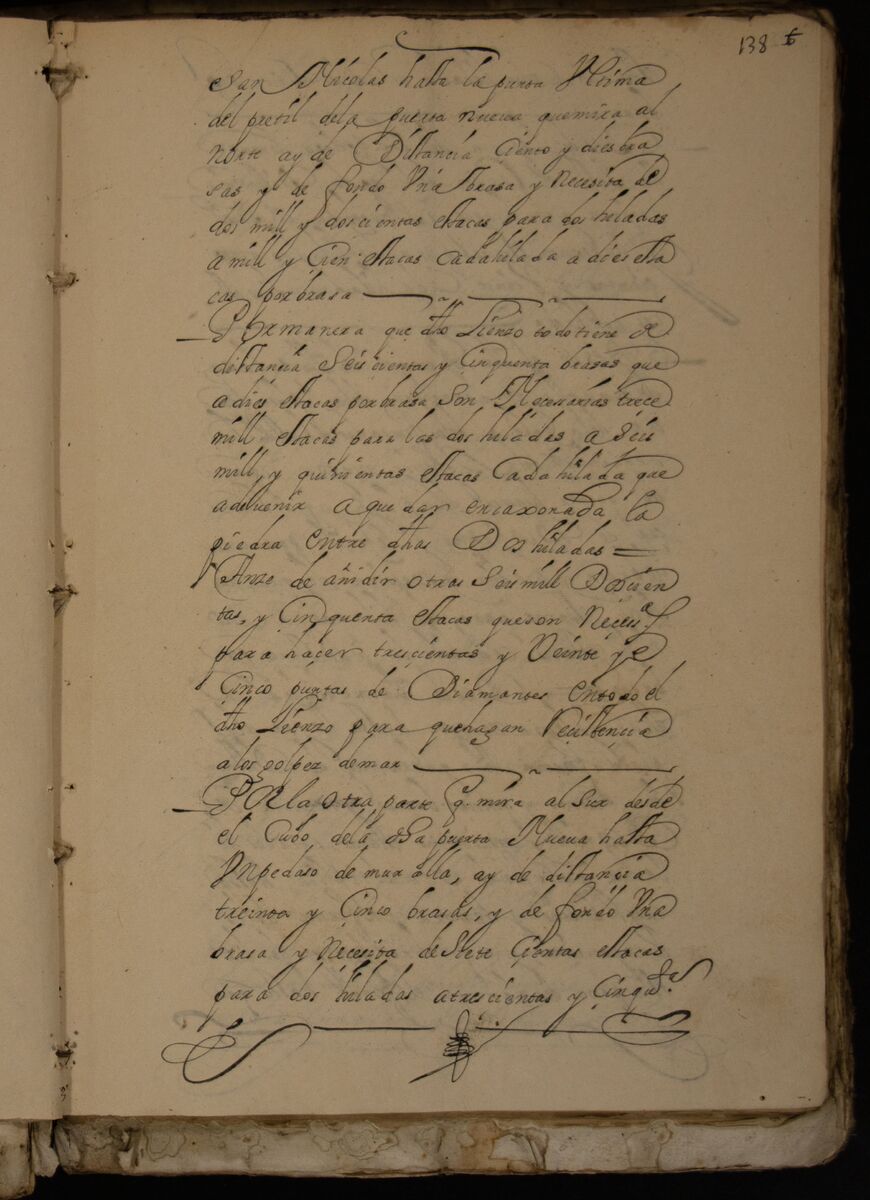 138 6
San Nicolas hasta la punta Vltima
del pretil dela puerta nueua quemira al
norte ay de Distancia Ciento y dies bra
sas y de fondo Vna brasa y Necesita de
dos mill y doscientas estacas para dos hiladas
a mill y Cien estacas Cada hilada a dies esta
cas por brasa
Por manera que dho Lienzo todo tiene de
distancia Seiscientas y Cinquenta brasas que
a dies estacas por brasa Son Necesarias trece
mill estacas para las dos hiladas a Seis
mill, y quinientas estacas Cada hilada que
a de uenir a quedar encaxonada la
piedra entre dhas Dos hiladas =
Anse de añidir otras Seis mill Docien
tas, y Cinquenta estacas que son Necess.as
para hacer trescientas y Veinte y
Cinco puntas de Diamantes en todo el
dho Lienzo para que hagan Recistencia
a los golpez de mar
Por la otra parte q. mira al Sur desde
el Cubo dela dha puerta Nueua hasta
Vn pedaso de muralla, ay de distancia
treinta y Cinco brasas, y de fondo Vna
brasa y Necesita de Siete Cientas estacas
para dos hiladas a trescientas y Cinqu.ta